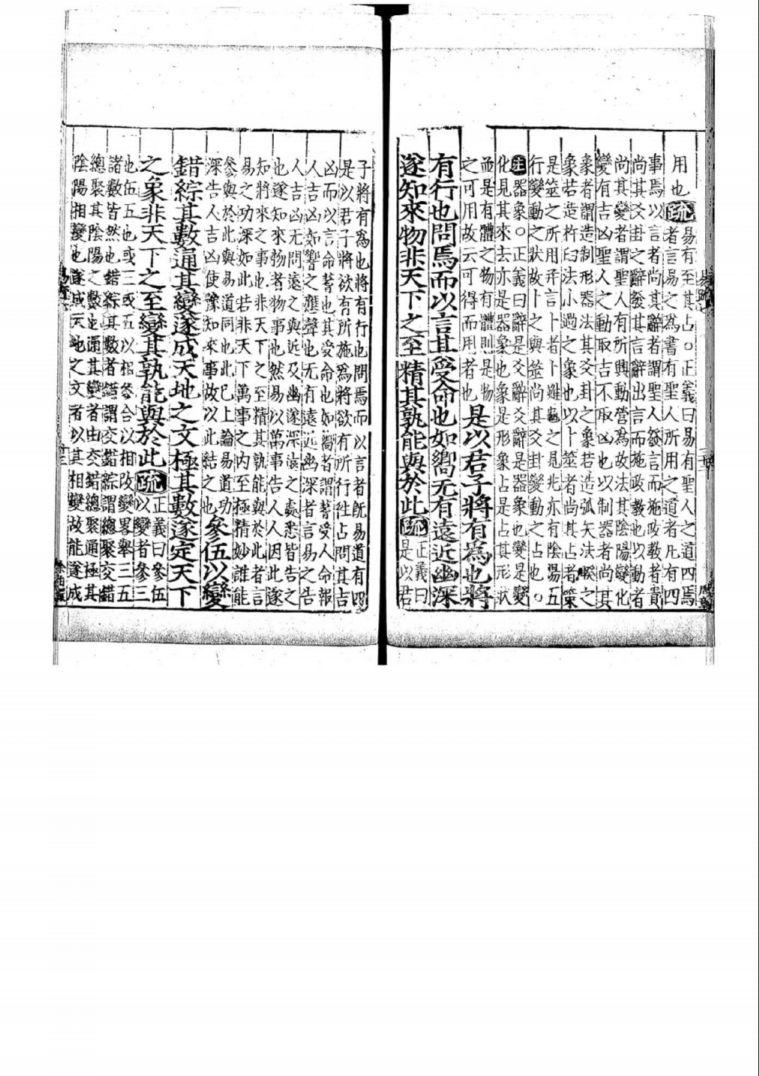 用也疏易有至其占○正義曰易有聖人之道四焉
者言易之為書有聖人所用之道者凡有四
事焉以言者尚其辭者謂聖人發言而施政教者貴
尚其爻卦之辭發其言辭出言而施政教也以動者
尚其變者謂聖人有所興動營為故法其陰陽變化
變有吉凶聖人之動取吉不取凶也以制器者尚其
象者謂造制形器法其爻卦之象若造弧矢法睽之
象若造杵臼法小過之象也以卜筮者尚其占者策
是筮之所用并言卜者卜雖龜之見兆亦有陰陽五
行變動之狀故卜之與筮尚其爻卦變動之占也○
注器象○正義曰辭是爻辭爻辭是器象也變是變
化見其來去亦是器象也象是形象占是占其形狀
而是有體之物有體則是物
之可用故云可得而用者也
是以君子將有為也將
有行也問焉而以言其受命也如嚮无有遠近幽深
遂知來物非天下之至精其孰能與於此疏正義曰
是以君
子將有為也將有行也問焉而以言者既易道有四
是以君子將欲有所施為將欲有所行往占問其吉
凶而以言命蓍也其受命也如嚮者謂蓍受人命報
人吉凶如響之應聲也无有遠近幽深者言易之告
人吉凶无問遠之與近及幽邃深遠之處悉皆告之
也遂知來物者物事也然易以萬事告人人因此遂
知將來之事也非天下之至精其孰能與於此者言
易之功深如此若非天下萬事之內至極精妙誰能
參與於此與易道同也此已上論易道功
深告人吉凶使豫知來事故以此結之也
參伍以變
錯綜其數通其變遂成天地之文極其數遂定天下
之象非天下之至變其孰能與於此疏正義曰參伍
以變者參三
也伍五也或三或五以相參合以相改變畧舉三五
諸數皆然也錯綜其數者錯謂交錯綜謂總聚交錯
總聚其陰陽之數也通其變者由交錯總聚通極其
陰陽相變也遂成天地之文者以其相變故能遂成